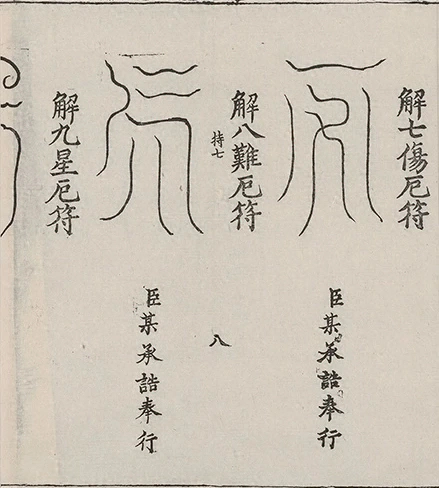 解七傷厄符
臣某承誥奉行
解八難厄符
持七
八
臣某承誥奉行
解九星厄符